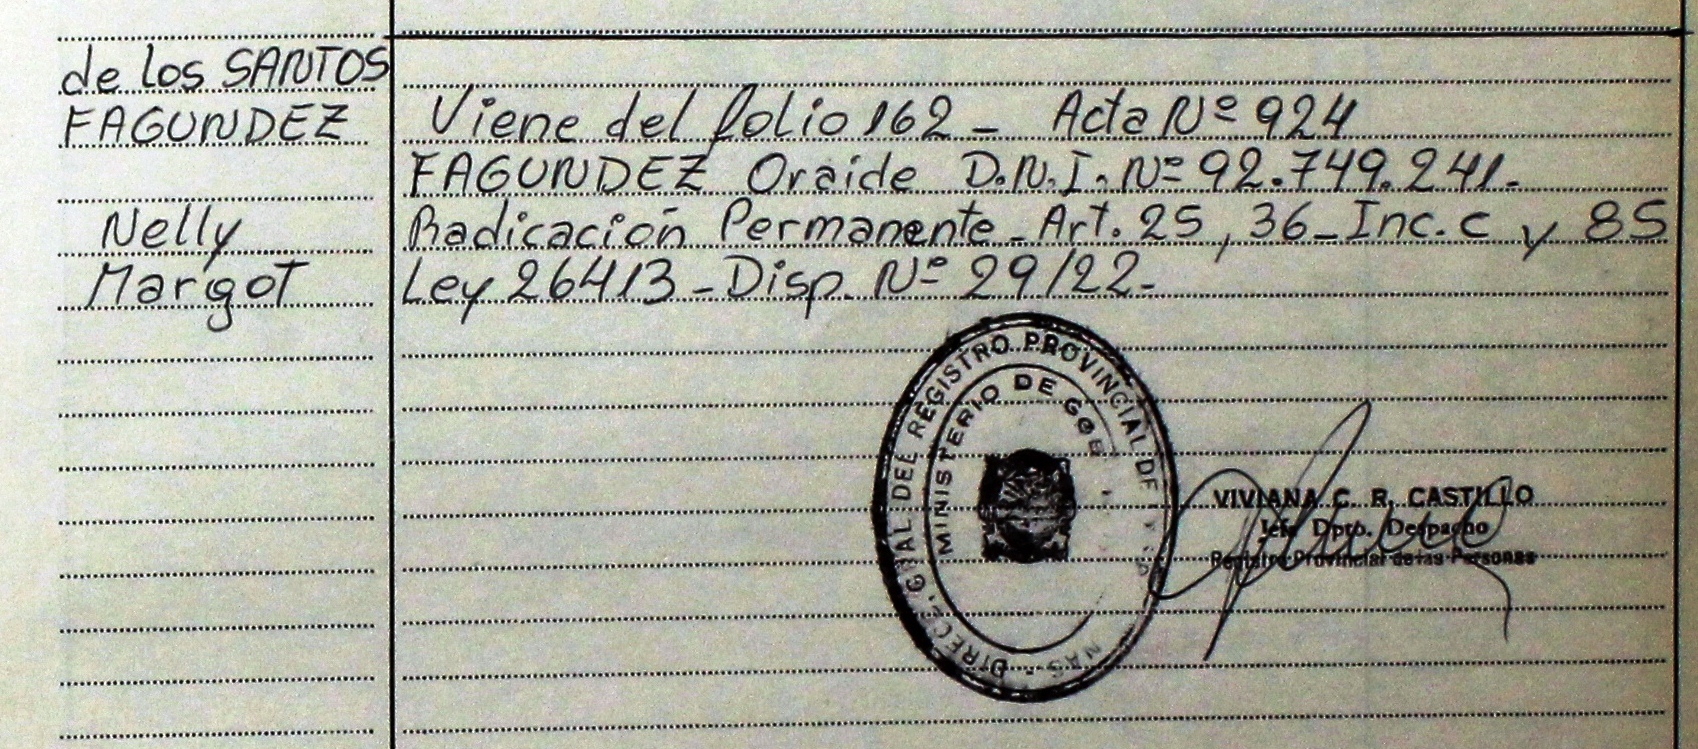 de los SANTOS
FAGUNDEZ
Nelly
Margot
Viene del folio 162 - Acta Nº 924
FAGUNDEZ Oraide D.N.I. Nº 92.749.241.
Radicación Permanente - Art. 25, 36 - Inc. c y 85
Ley 26413 - Disp. Nº 29/22 -
DIRECC. GRAL DEL REGISTRO PROVINCIAL DE
MINISTERIO DE GOB
VIVIANA C. R. CASTILLO
Jefe Dpto. Despacho
Registro Provincial de las Personas